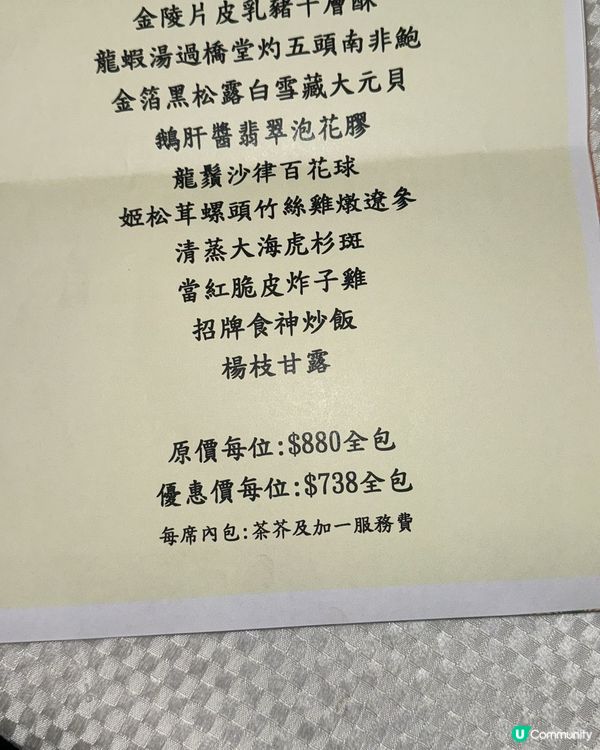 金陵片皮乳豬千層酥
龍蝦湯過橋堂灼五頭南非鮑
金箔黑松露白雪藏大元貝
鵝肝醬翡翠泡花膠
龍鬚沙律百花球
姬松茸螺頭竹絲雞燉遼參
清蒸大海虎杉斑
當紅脆皮炸子雞
招牌食神炒飯
楊枝甘露
原價每位:$880全包
優惠價每位:$738全包
每席內包:茶芥及加一服務費
U Community